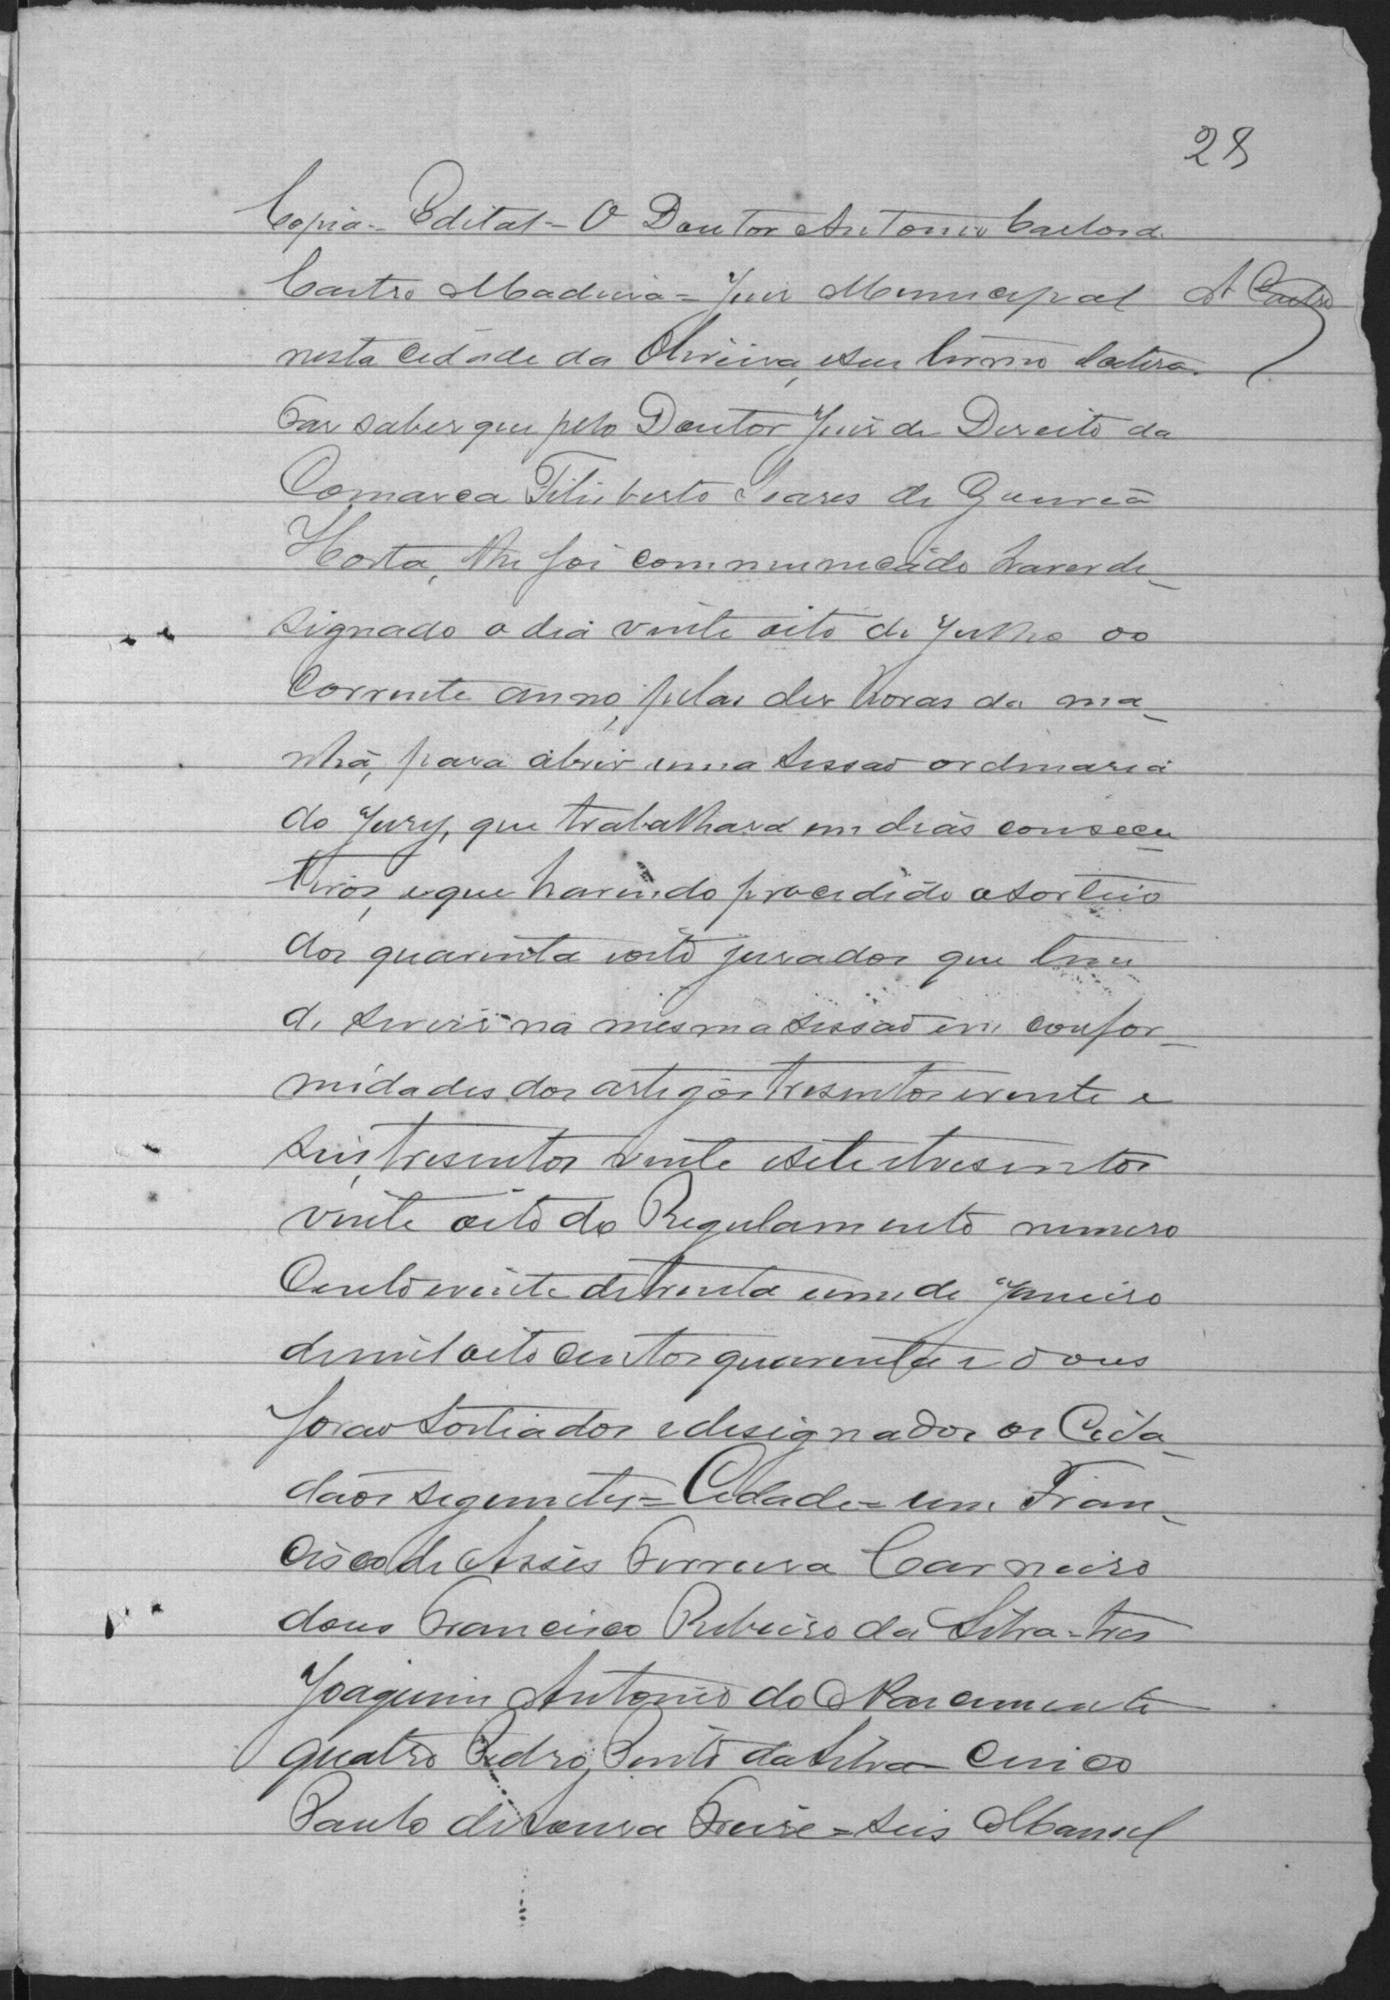 28
Copia - Edital - O Doutor Antonio Carlos de
Castro Madeira = Juis Municipal A Castro
nesta cidade da Oliveira, e seu termo etc
Faz saber que pelo Doutor Juis de Direito da
Comarca Feliberto Soares de Gouvêa
Horta, lhe foi communicado haver de-
signado o dia vinte oito de Julho do
Corrente anno, pelas dez horas da ma-
nhã, para abrir uma sessão ordinaria
do Jury, que trabalhará em dias consecu-
tivos, e que havendo procedido a sorteio
dos quarenta e oito jurados que tem
de servir na mesma sessão em confor-
midades dos artigos tresentos e vinte e
seis, tresentos vinte e sete e tresentos
vinte oito do Regulamento numero
Cento e vinte de trinta e um de Janeiro
de mil oito centos quarenta e dous
forão sorteados e designados os Cida-
dãos seguintes = Cidade = um Fran-
cisco de Assis Ferreira Carneiro
dous Francisco Ribeiro da Silva - tres
Joaquim Antonio do Nascimento
quatro Pedro Bento da Silva - Cinco
Paulo de Souza Freire = seis Manoel